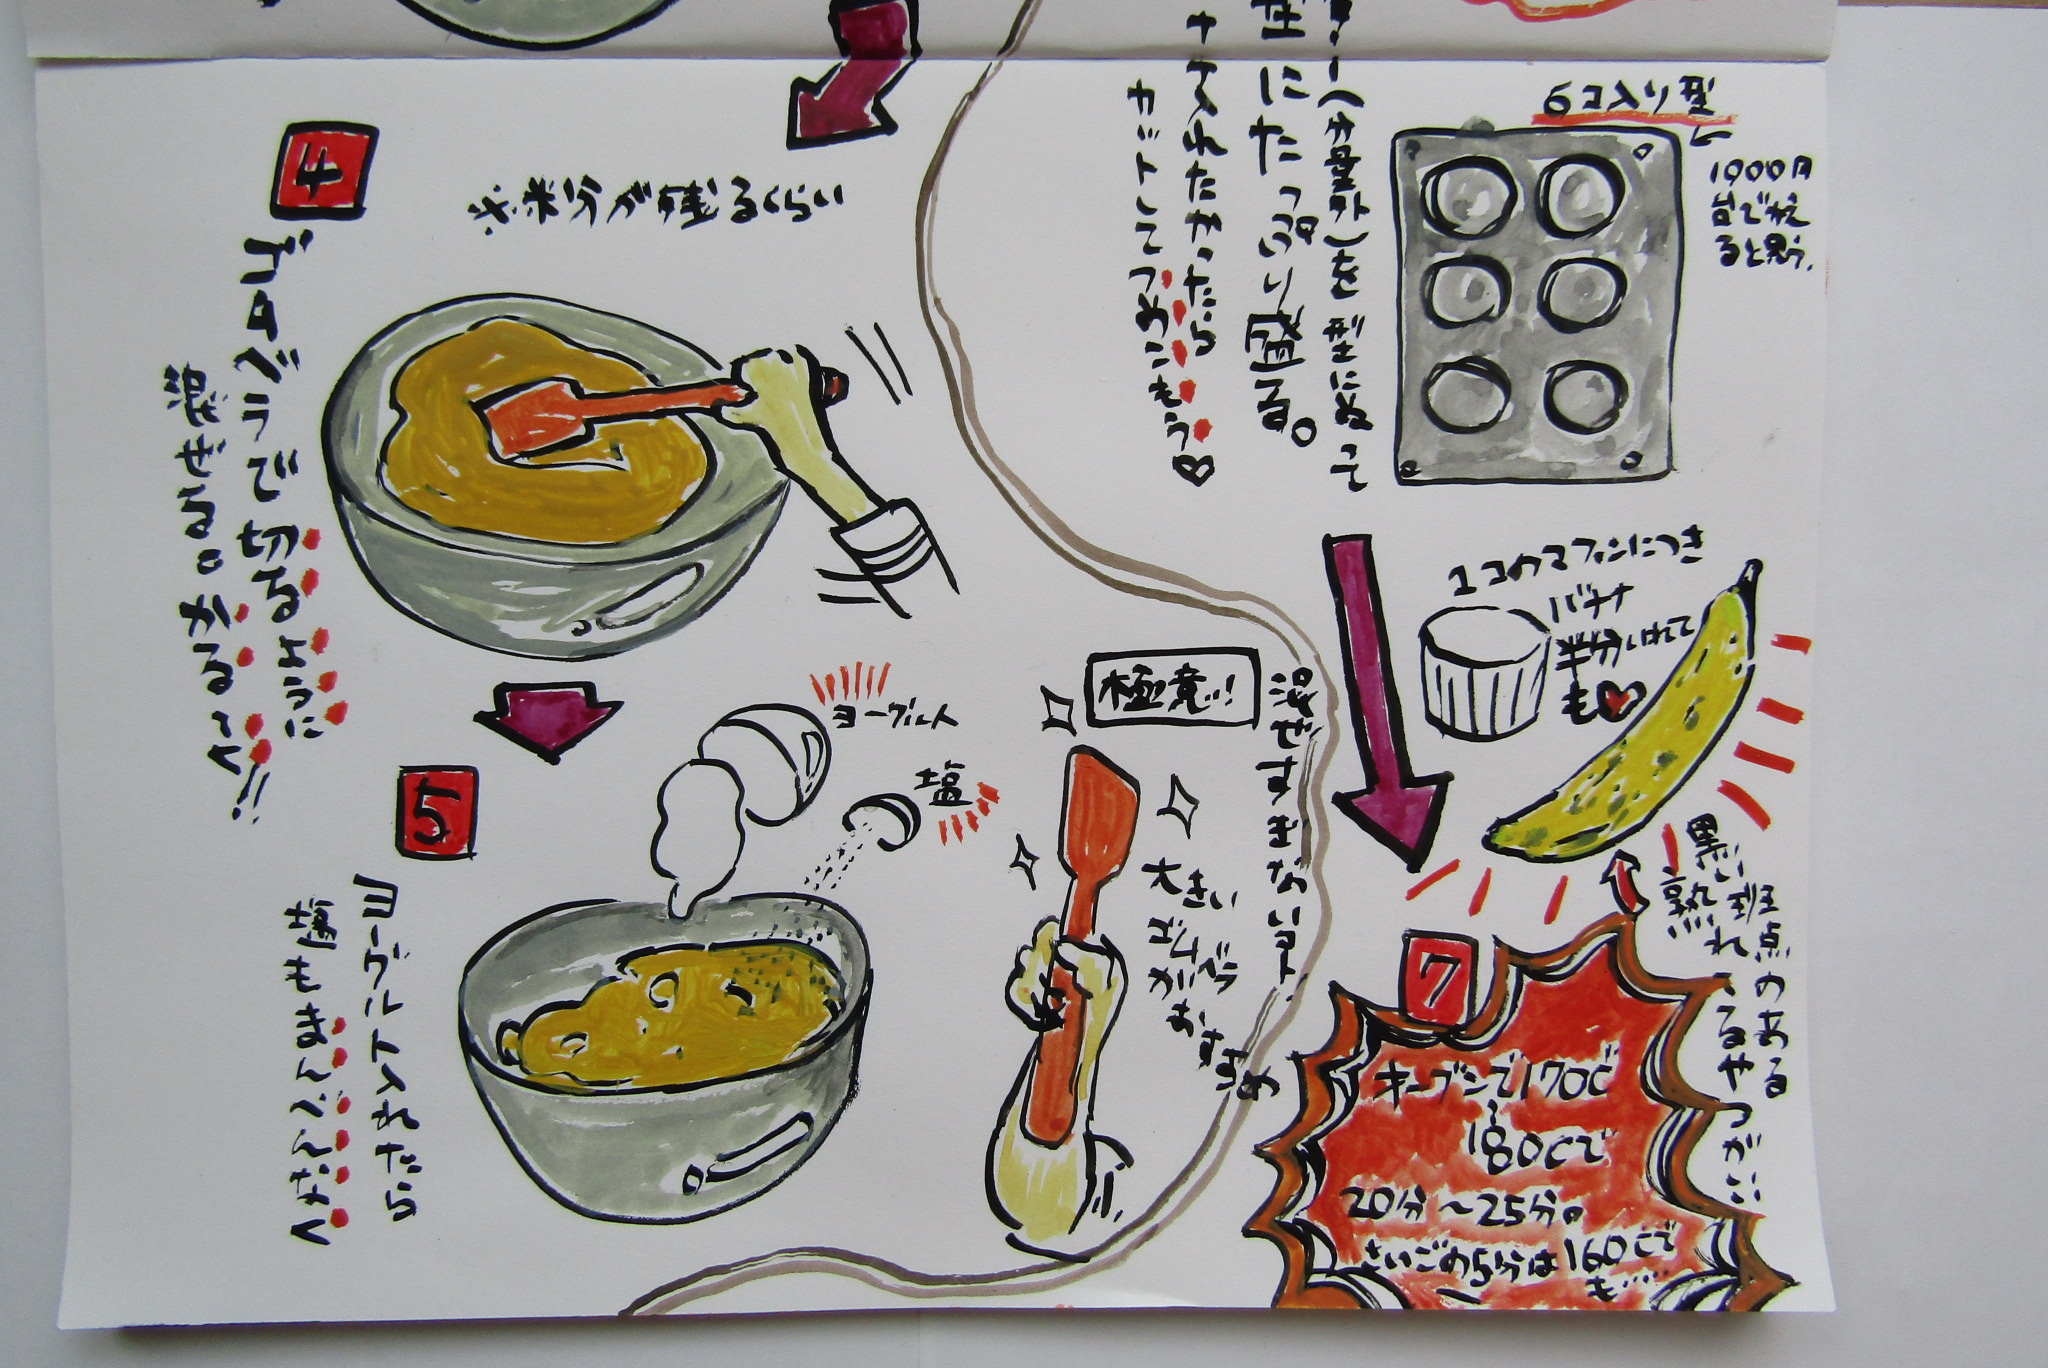 4
※粉分が残るくらい
ゴムベラで切るように
混ぜる。かる〜く!!
5
ヨーグルト
塩
ヨーグルト入れたら
塩もまんべんなく
極意!!
混ぜすぎないコト
大きい
ゴムベラ
がおすすめ
6コ入り型
1000円
台でかえ
ると思う。
ー(分量外)を型にぬって
型にたっぷり盛る。
入れたかったら
カットしてつめこもう♡
1コのマフィンにつき
バナナ
半分いれて
も♥
黒い斑点のある
熟れてるやつがいい
7
オーブンで170℃
〜
180℃で
20分〜25分。
さいごの5分は160℃で
も……